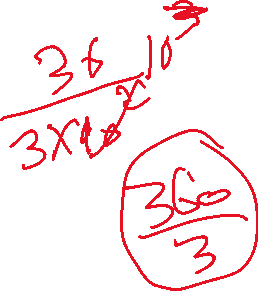 36 10
3x10
360
3